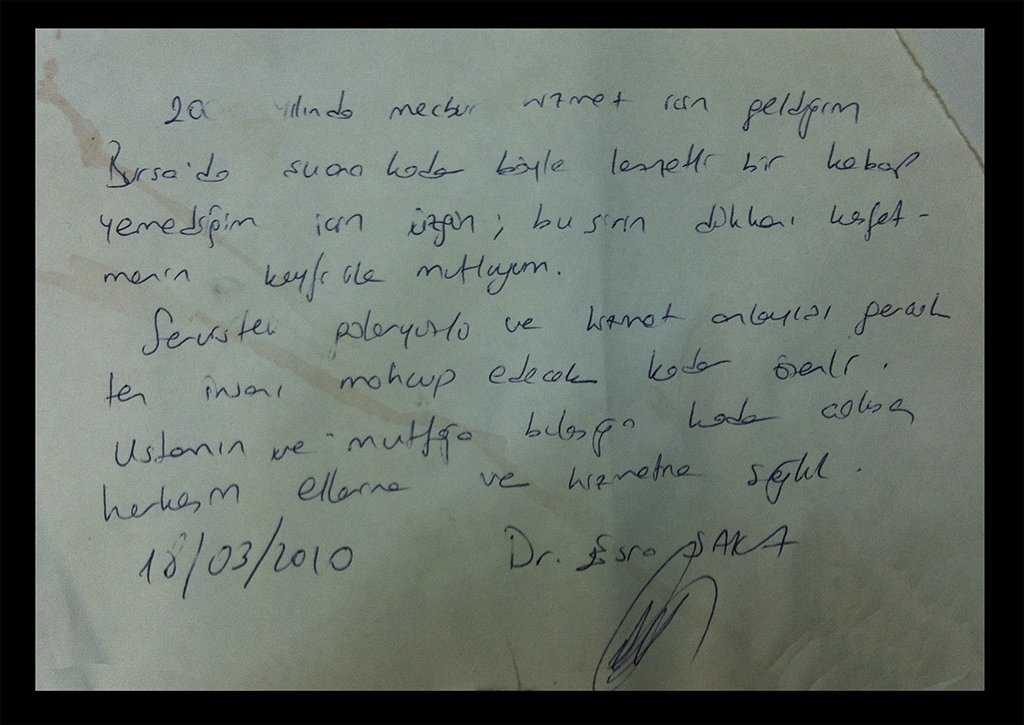 20 yılında mecbur hizmet için geldiğim
Bursa'da şuana kadar böyle lezzetli bir kebap
yemediğim için üzgün; bu şirin dükkanı keşfet-
menin keyfi ile mutluyum.
Servisten güleryüzlü ve hizmet anlayışı gerçek
ten insanı mahcup edecek kadar özenli.
Ustanın ve mutfağa kadar çalışan
herkesin ellerine ve hizmetine sağlık.
18/03/2010 Dr. Esra SAKA